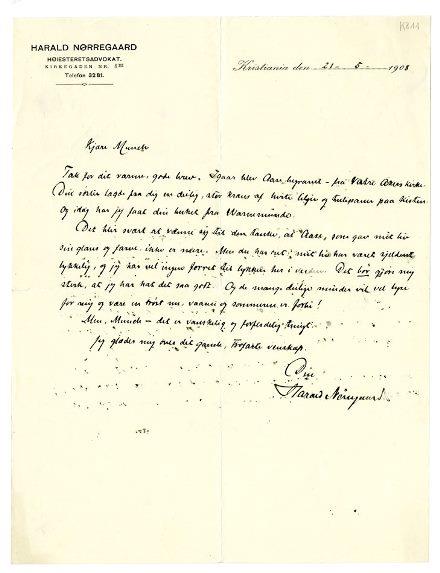 K811
HARALD NØRREGAARD
HØIESTERETSADVOKAT.
KIRKEGADEN NR.
Telefon 3281.
Kristiania den 21 - 5 - 1908
Kjære Munch
Tak for dit varme, gode brev. Igaar blev Aase begravet - fra Vestre Akers kirke.
Din søster lagde fra dig en deilig, stor krans af hvite liljer og tulipaner paa kisten
Og idag har jeg faat din buket fra Warnemünde.
Det blir svært at vænne sig til den tanke, at Aase, som gav mit liv
sin glans og farve ikke er mere. Men du har ret: mit liv har været sjeldent
lykkelig, og jeg har vel ingen forret til lykken her i verden. Det bør gjøre mig
sterk, at jeg har hat det saa godt. Og de mange deilige minder vil vel lyse
for mig og være en trøst nu, vaaren og sommeren er forbi!
Men, Munch - det er vanskelig og forferdelig tungt.
Jeg glæder mig over det gamle, trofaste venskap.
Din
Harald Nørregaard.